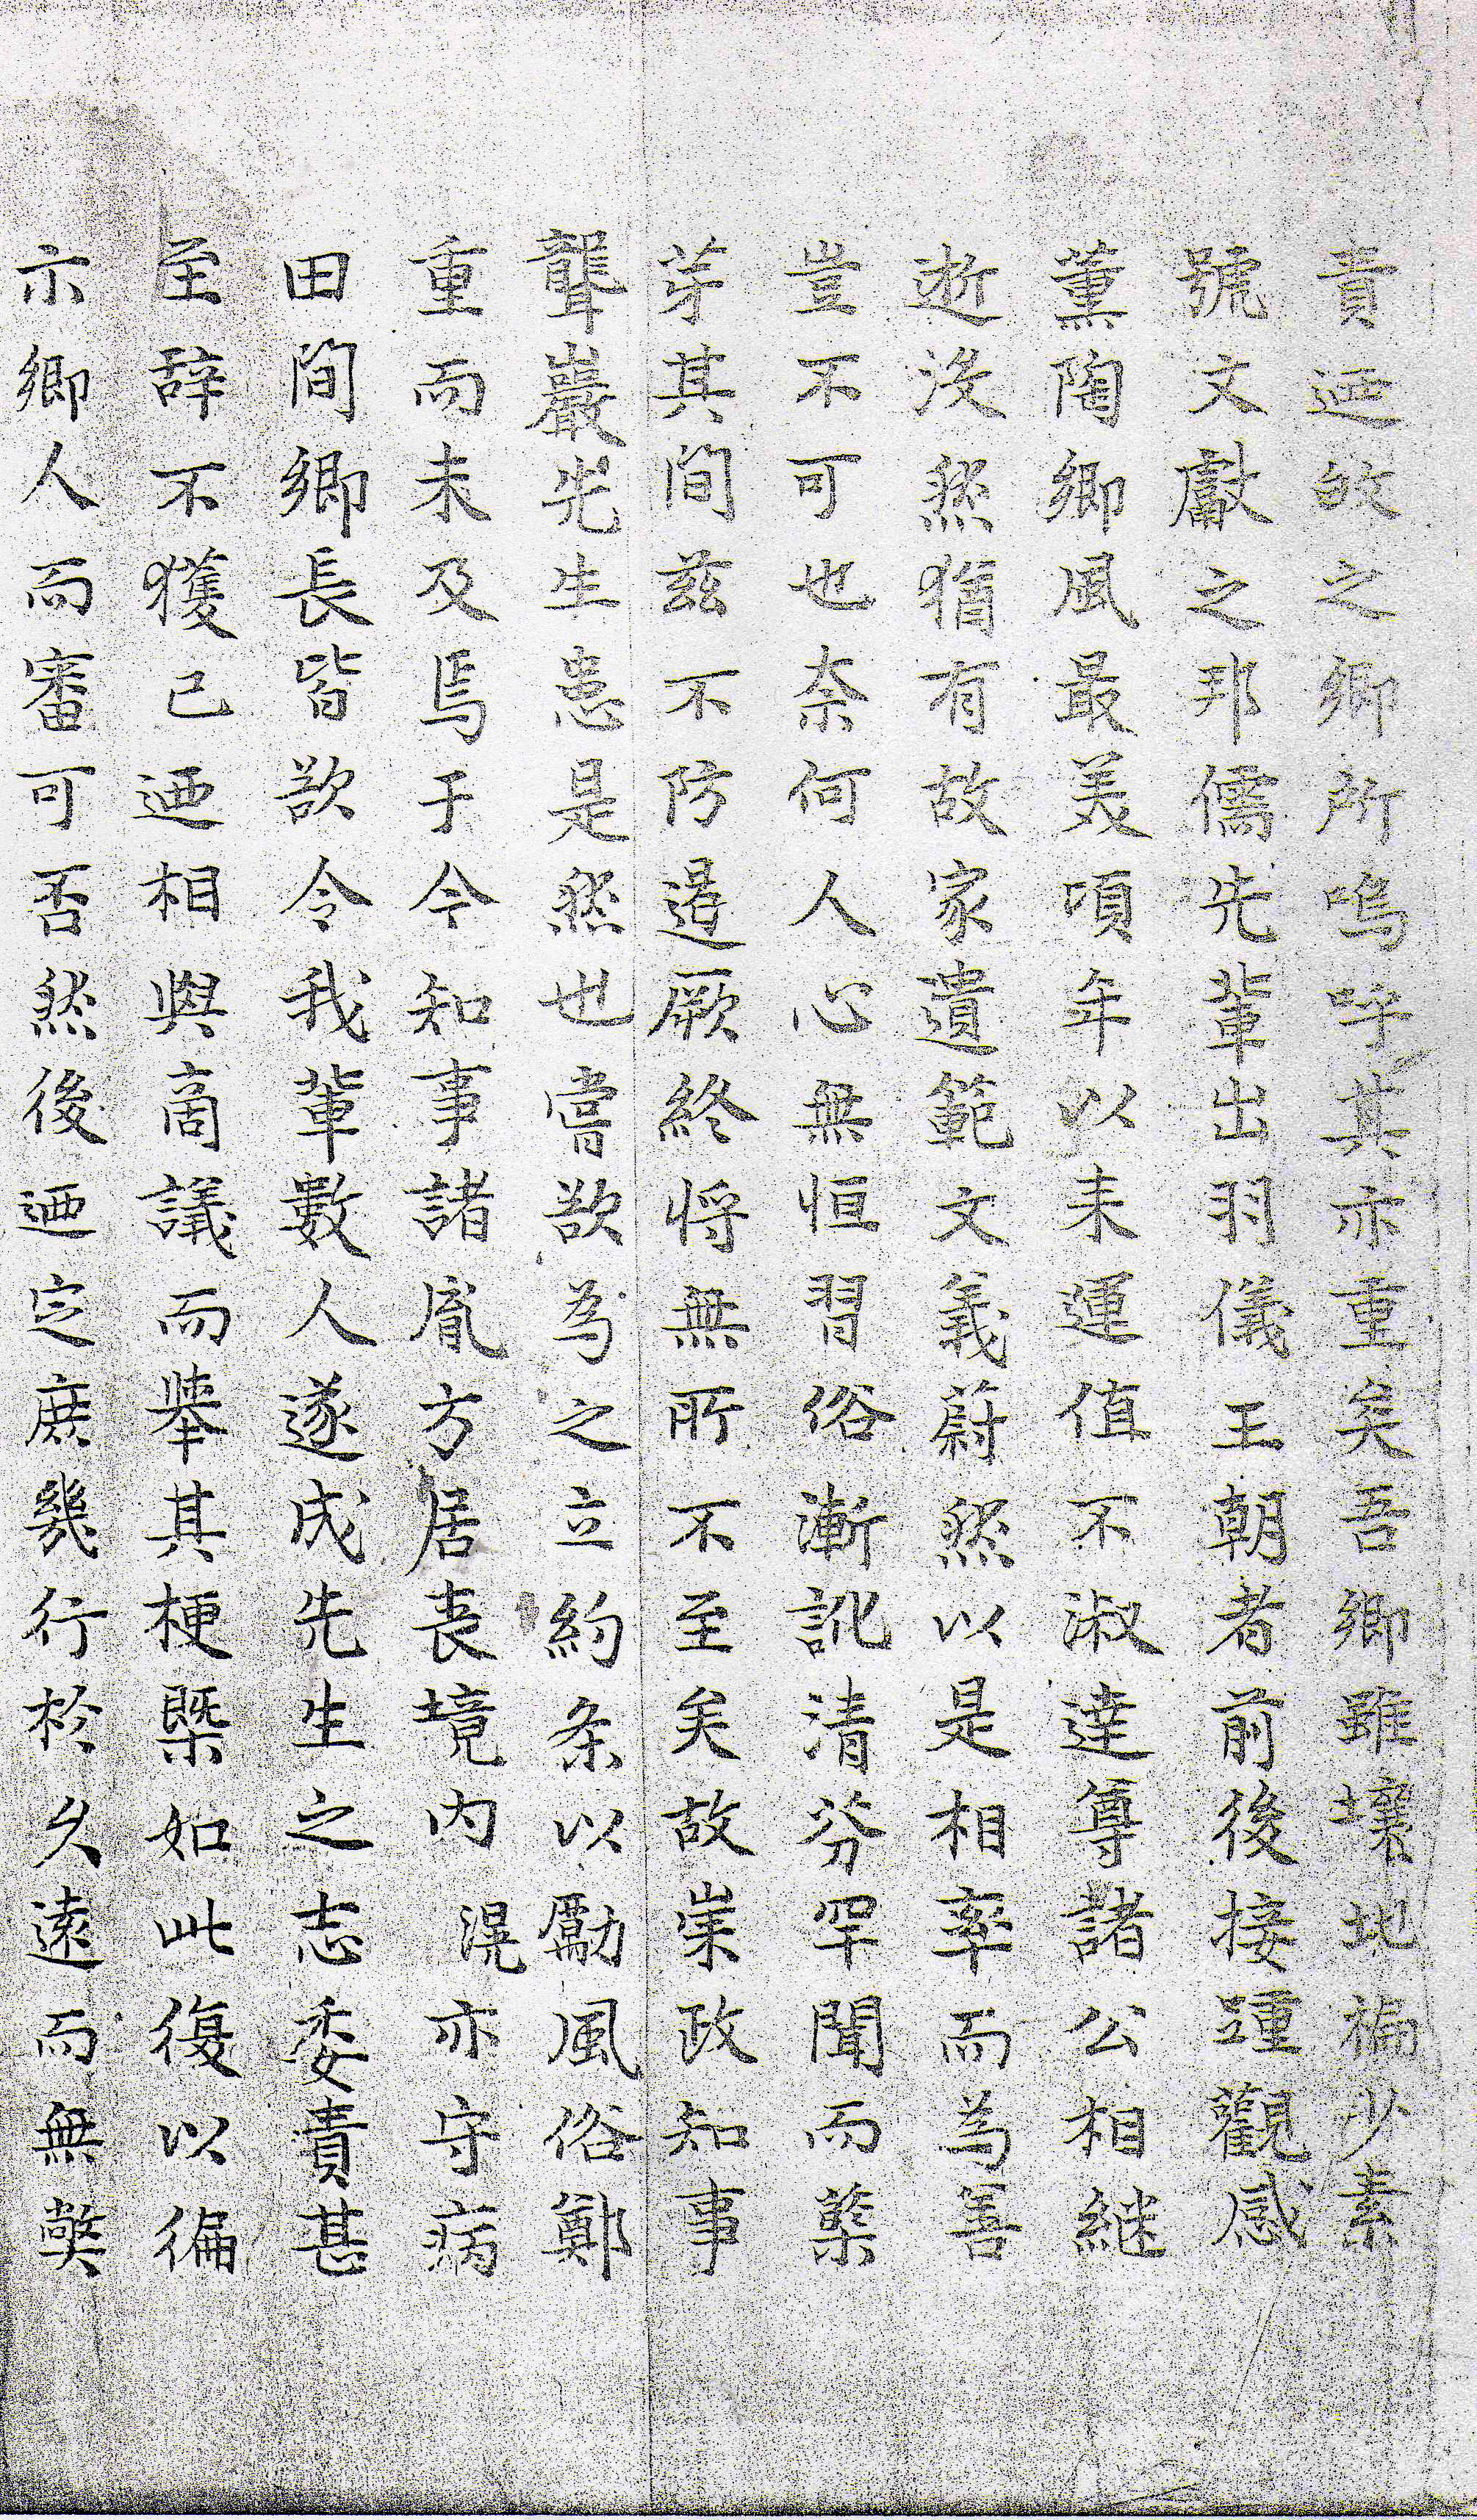 責迺攸之鄉所嗚呼其亦重矣吾鄉雖壤地褊少素
號文獻之邦儒先輩出羽儀王朝者前後接踵觀感
薰陶鄉風最美頃年以来運值不淑達尊諸公相継
逝没然猶有故家遺範文義蔚然以是相率而為善
豈不可也奈何人心無恒習俗漸訛清芬罕聞而蘖
芽其間玆不防遏厥終将無所不至矣故崇政知事
聾巖先生患是然也嘗欲為之立約条以勵風俗鄭
重而未及焉于今知事諸胤方居丧境内滉亦守病
田間鄉長皆欲令我輩數人遂成先生之志委責甚
至辞不獲已迺相與商議而舉其梗槩如此復以徧
示鄉人而審可否然後迺定庶幾行於久遠而無獘